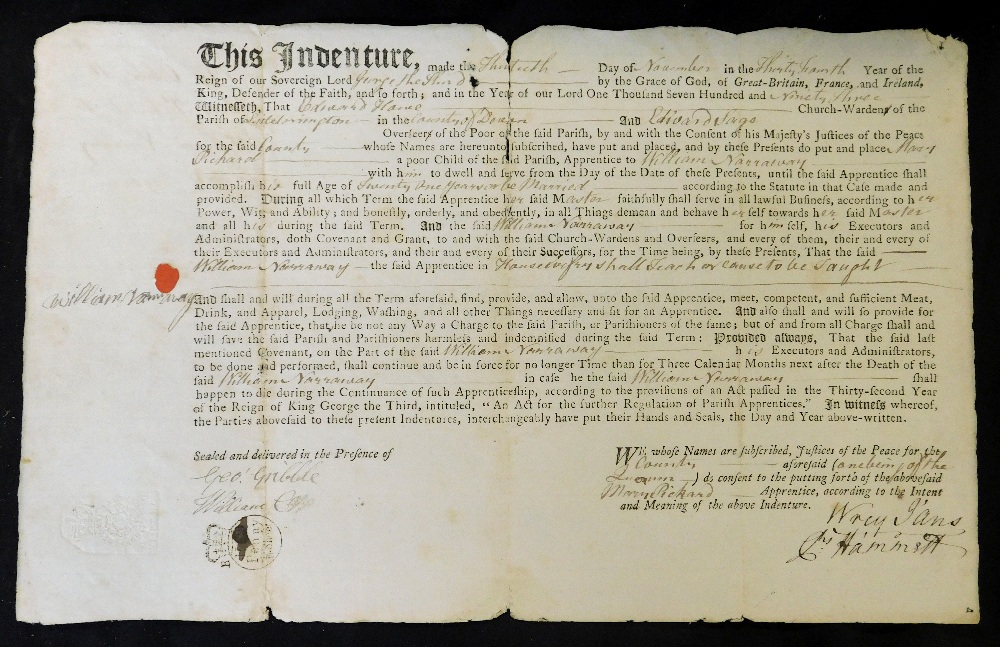 This Indenture, made the Thirtieth Day of November in the Thirty fourth Year of the
Reign of our Sovereign Lord George the Third by the Grace of God, of Great-Britain, France, and Ireland,
King, Defender of the Faith, and so forth; and in the Year of our Lord One Thousand Seven Hundred and Ninety three
Witnesseth, That Edward Church-Wardens of the
Parish of in the County of Devon And Edward
Overseers of the Poor of the said Parish, by and with the Consent of his Majesty's Justices of the Peace
for the said County whose Names are hereunto subscribed, have put and placed, and by these Presents do put and place Mary
Pickard a poor Child of the said Parish, Apprentice to William Narraway
with him to dwell and serve from the Day of the Date of these Presents, until the said Apprentice shall
accomplish her full Age of Twenty One Years or be Married according to the Statute in that Case made and
provided. During all which Term the said Apprentice her said Master faithfully shall serve in all lawful Business, according to her
Power, Wit, and Ability; and honestly, orderly, and obediently, in all Things demean and behave herself towards her said Master
and all his during the said Term. And the said William Narraway for himself, his Executors and
Administrators, doth Covenant and Grant, to and with the said Church-Wardens and Overseers, and every of them, their and every of
their Executors and Administrators, and their and every of their Successors, for the Time being, by these Presents, That the said
William Narraway the said Apprentice in Housewifery shall Teach or cause to be Taught
William Narraway
And shall and will during all the Term aforesaid, find, provide, and allow, unto the said Apprentice, meet, competent, and sufficient Meat,
Drink, and Apparel, Lodging, Washing, and all other Things necessary and fit for an Apprentice. And also shall and will so provide for
the said Apprentice, that he be not any Way a Charge to the said Parish, or Parishioners of the same; but of and from all Charge shall and
will save the said Parish and Parishioners harmless and indemnified during the said Term: Provided always, That the said last
mentioned Covenant, on the Part of the said William Narraway his Executors and Administrators,
to be done and performed, shall continue and be in force for no longer Time than for Three Calendar Months next after the Death of the
said William Narraway in case he the said William Narraway shall
happen to die during the Continuance of such Apprenticeship, according to the provisions of an Act passed in the Thirty-second Year
of the Reign of King George the Third, intituled, "An Act for the further Regulation of Parish Apprentices." In witness whereof,
the Parties abovesaid to these present Indentures, interchangeably have put their Hands and Seals, the Day and Year above-written.
Sealed and delivered in the Presence of
Geo: Gribble
William
We, whose Names are subscribed, Justices of the Peace for the
County aforesaid (one being of the
Quorum) do consent to the putting forth of the abovesaid
Mary Pickard Apprentice, according to the Intent
and Meaning of the above Indenture.
Wrey I'ans
Hammett